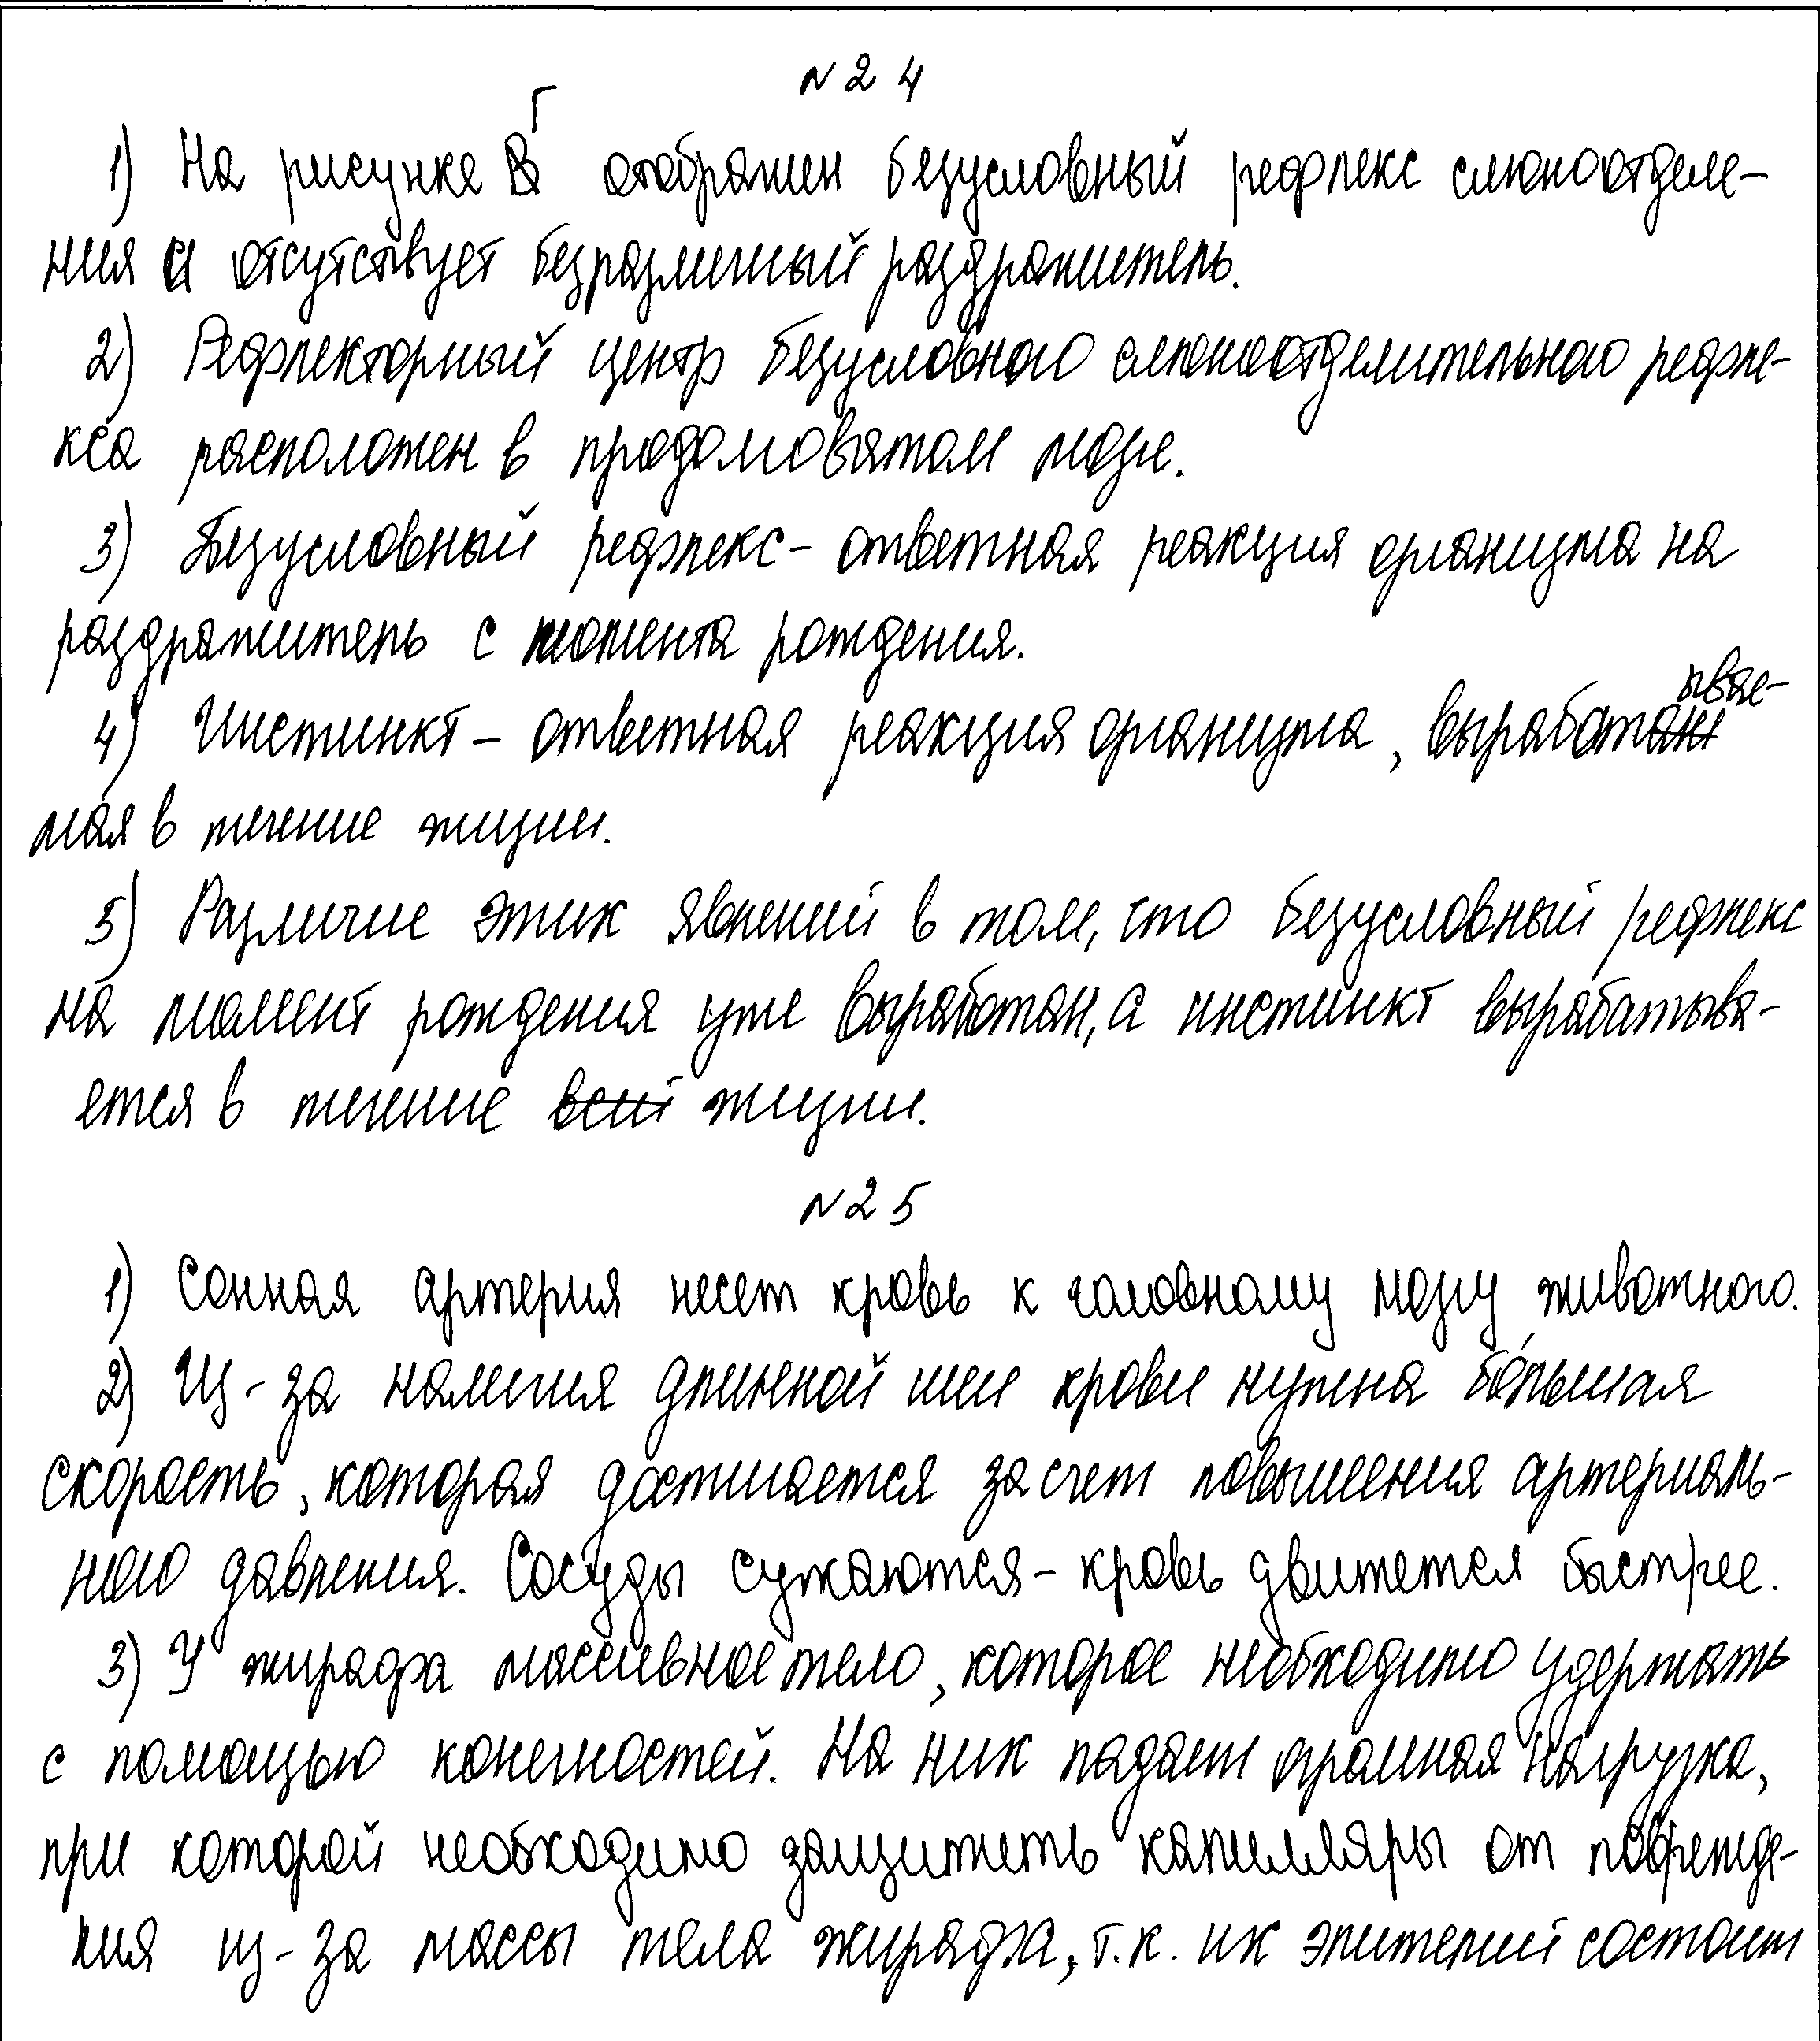 N 2 4
Г
1) На рисунке В отображен безусловный рефлекс слюноотделе-
ния и отсутствует безразличный раздражитель.
2) Рефлекторный центр безусловного слюноотделительного рефле-
кса расположен в продолговатом мозге.
3) Безусловный рефлекс - ответная реакция организма на
раздражитель с момента рождения.
ывае-
4) Инстинкт - ответная реакция организма, выработанн
мая в течение жизни.
5) Различие этих явлений в том, что безусловный рефлекс
на момент рождения уже выработан, а инстинкт вырабатыва-
ется в течение всей жизни.
N 2 5
1) Сонная артерия несет кровь к головному мозгу животного.
2) Из-за наличия длинной шеи крови нужна бо́льшая
скорость, которая достигается за счет повышения артериаль-
ного давления. Сосуды сужаются - кровь движется быстрее.
3) У жирафа массивное тело, которое необходимо удержать
с помощью конечностей. На них падает огромная нагрузка,
при которой необходимо защитить капилляры от поврежде-
ния из-за массы тела жирафа, т.к. их эпителий состоит